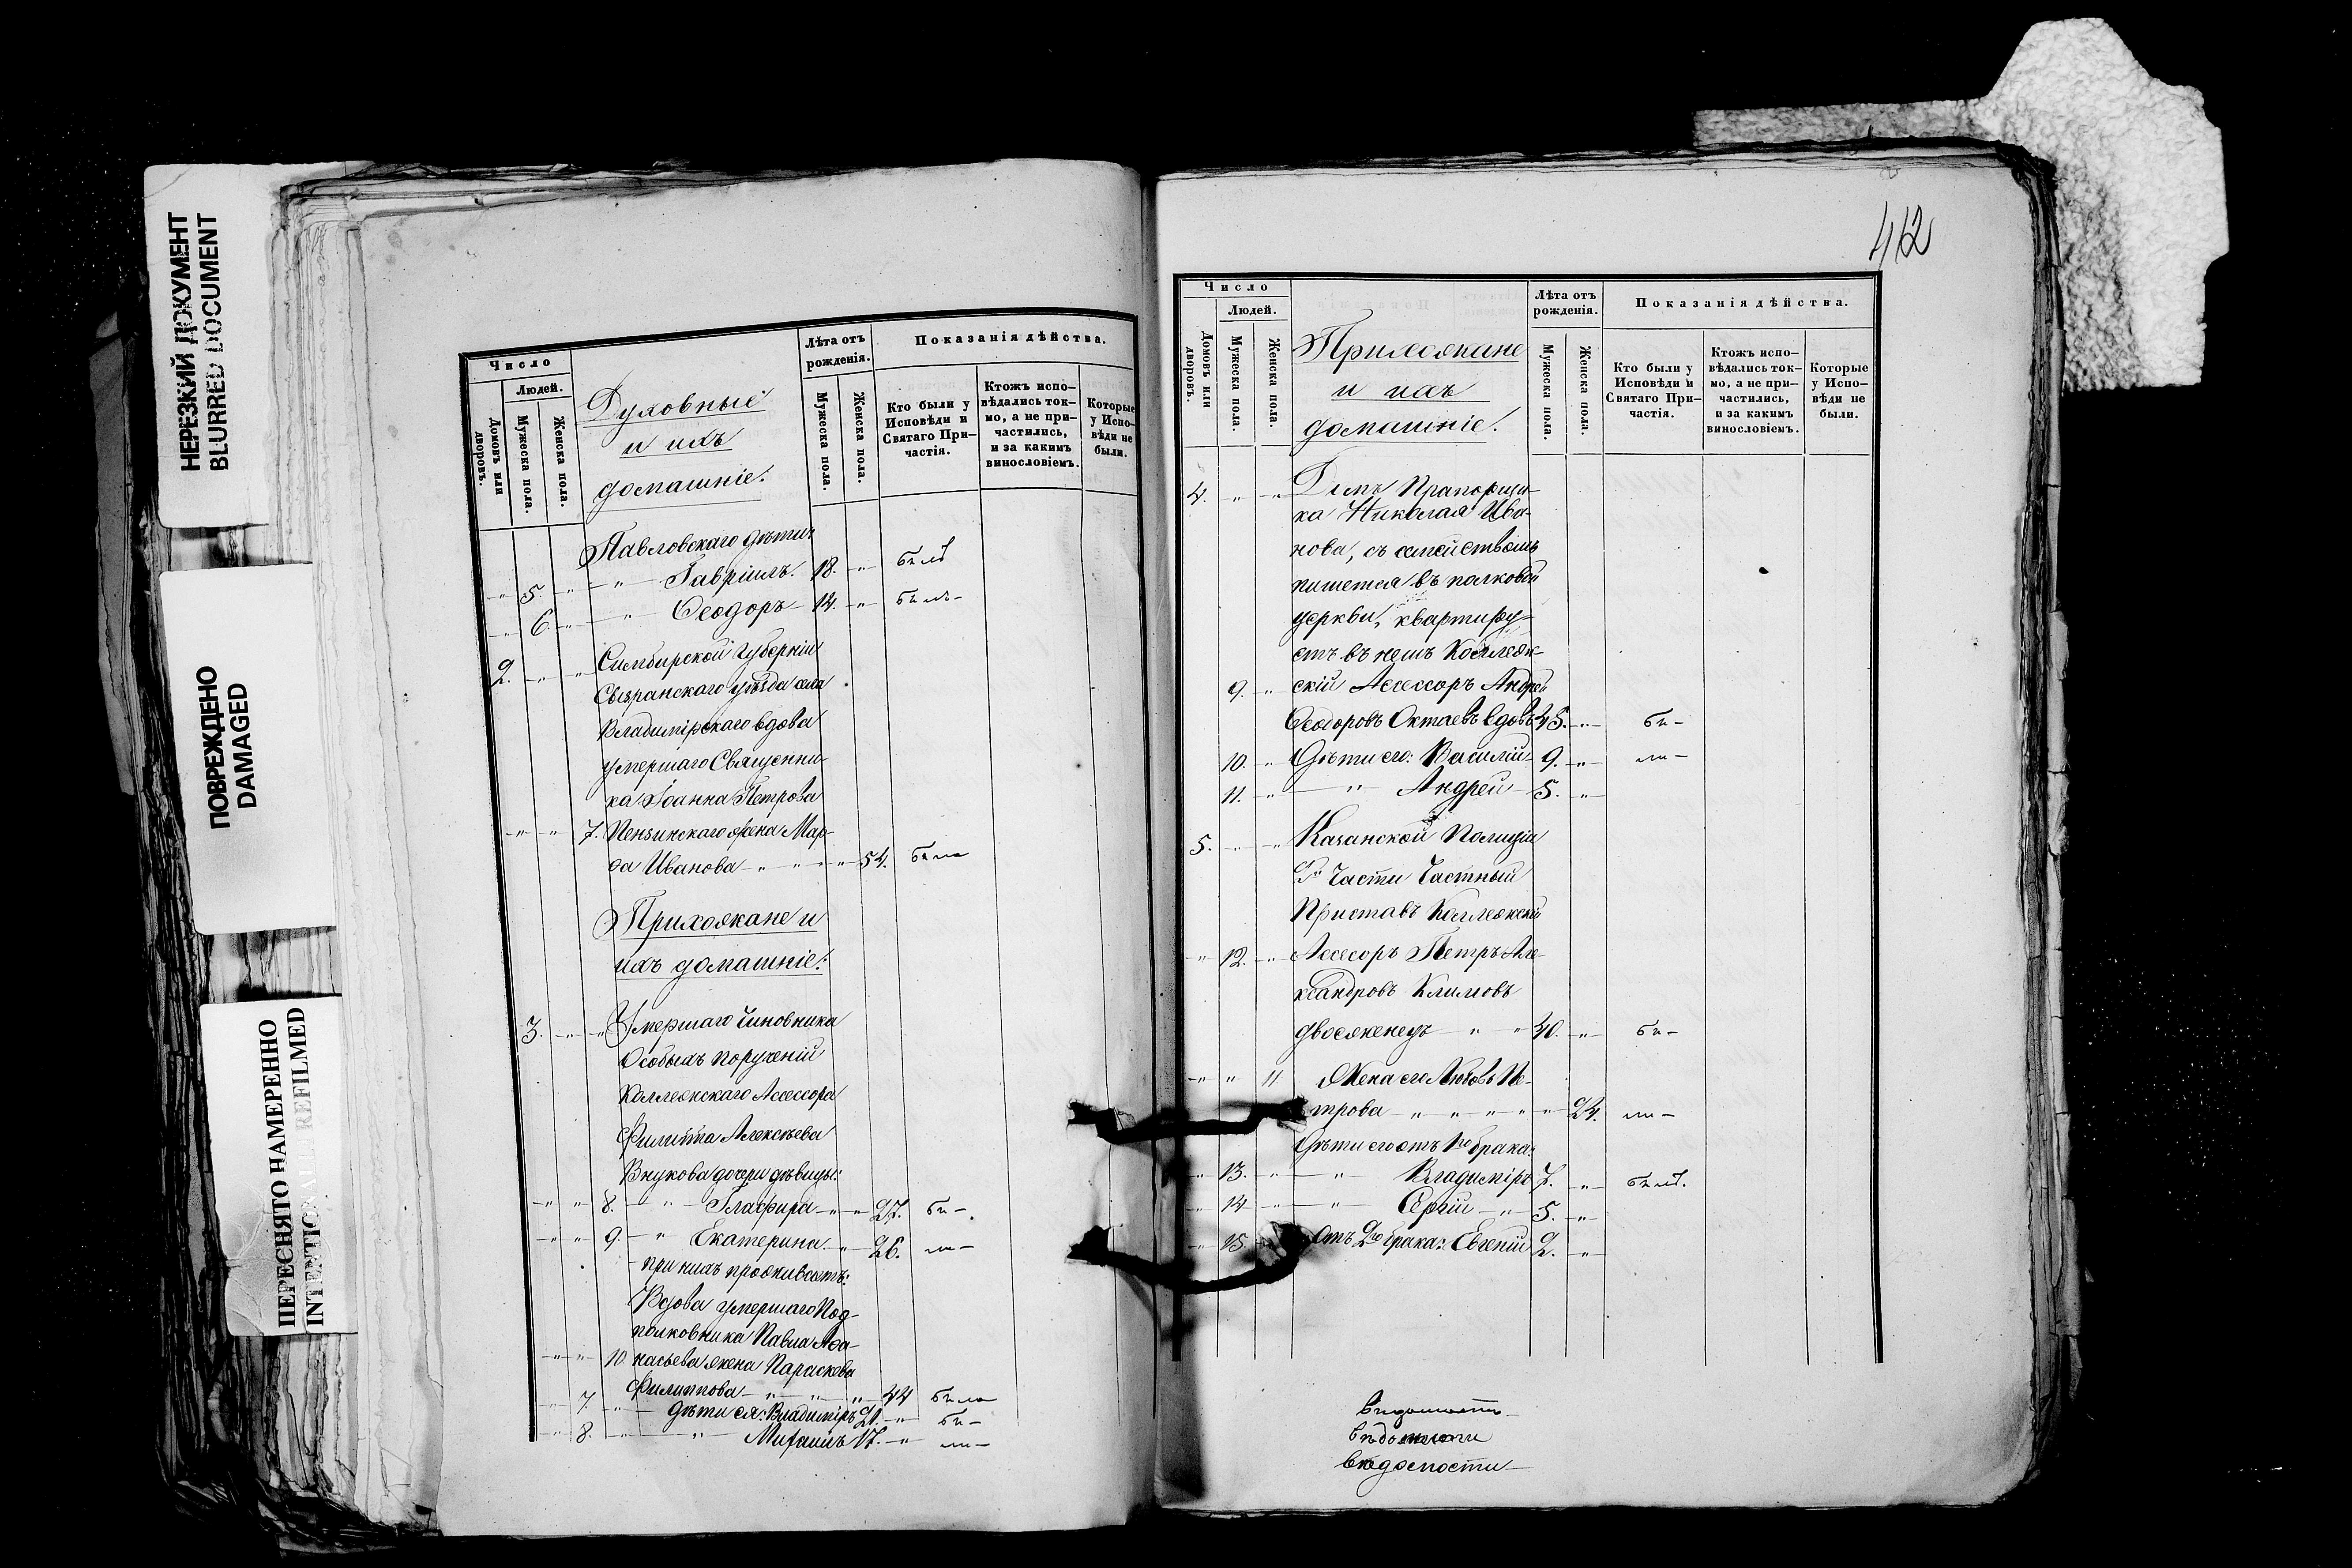 НЕРЕЗКИЙ ДОКУМЕНТ
BLURRED DOCUMENT
ПОВРЕЖДЕНО
DAMAGED
ПЕРЕСНЯТО НАМЕРЕННО
INTENTIONALLY REFILMED
Число
Людей.
Домовъ или дворовъ.
Мужеска пола.
Женска пола.
Духовные
и ихъ
домашніе.
Лѣта отъ рожденія.
Мужеска пола.
Женска пола.
Показанія дѣйства.
Кто были у Исповѣди и Святаго Причастія.
Ктожъ исповѣдались токмо, а не причастились, и за какимъ винословіемъ.
Которые у Исповѣди не были.
Павловскаго дѣти:
5. Гавріилъ. 18. былъ
6. Ѳеодоръ 14. былъ
2. Симбирской Губерніи
Сызранскаго уѣзда села
Владимірскаго вдова
умершаго Священни-
ка Іоанна Петрова
7. Пензинскаго жена Мар-
ѳа Иванова 54. была
Прихожане и
ихъ домашніе:
3. Умершаго Чиновника
Особыхъ порученій
Коллежскаго Ассесора
Филиппа Алексѣева
Внукова дочери дѣвицы:
8. Глафира 27. бы-
9. Екатерина 26. ли-
при нихъ проживаетъ:
Вдова умершаго Под-
полковника Павла Аѳа-
10. насьева жена Параскева
Филиппова 44 была
7. дѣти ея: Владиміръ 21. бы-
8. Михаилъ 17. ли-
412
Число
Людей.
Домовъ или дворовъ.
Мужеска пола.
Женска пола.
Прихожане
и ихъ
домашніе.
Лѣта отъ рожденія.
Мужеска пола.
Женска пола.
Показанія дѣйства.
Кто были у Исповѣди и Святаго Причастія.
Ктожъ исповѣдались токмо, а не причастились, и за какимъ винословіемъ.
Которые у Исповѣди не были.
4. Домъ Прапорщи-
ка Николая Ива-
нова, съ семействомъ
пишется въ полковой
церкви, квартиру-
етъ въ немъ Коллеж-
9. скій Ассессоръ Андрей
Ѳеодоровъ Октаевъ вдовъ 45. бы-
10. Дѣти его: Василій 9. ли-
11. Андрей 5.
5. Казанской Полиціи
Части Частный
Приставъ Коллежскій
12. Ассесоръ Петръ Але-
ксандровъ Климовъ
двоеженецъ 40. бы-
11 Жена его Любовь Пе-
трова 24. ли-
Дѣти его отъ 1го брака:
13. Владиміръ 7. былъ.
14 Сергій 5.
15. Отъ 2го брака: Евгеній 2.
вѣдомость
вѣдомости
вѣдомости